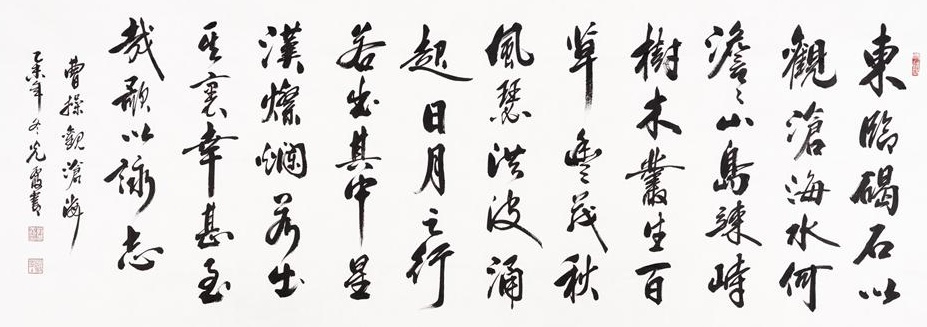 東臨碣石以
觀滄海水何
澹〻山島竦峙
樹木叢生百
草豐茂秋
風瑟洪波涌
起日月之行
若出其中星
漢燦爛若出
其裏幸甚至
哉歌以詠志
曹操觀滄海
乙未年冬光書